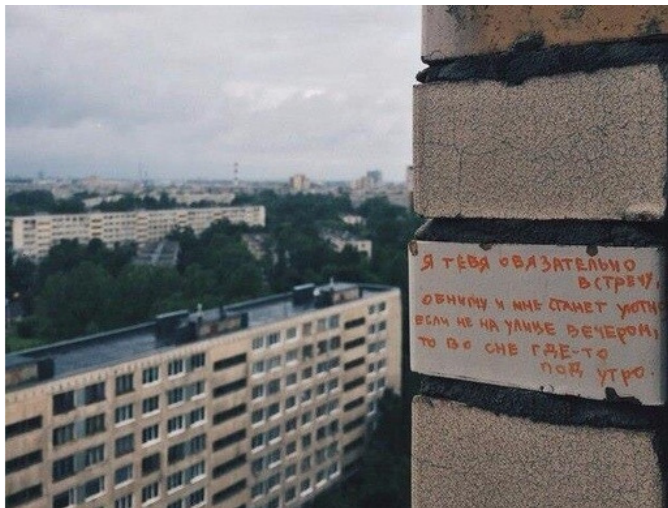 Я ТЕБЯ ОБЯЗАТЕЛЬНО
ВСТРЕЧУ,
ОБНИМУ И МНЕ СТАНЕТ УЮТН
ЕСЛИ НЕ НА УЛИЦЕ ВЕЧЕРОМ,
ТО ВО СНЕ ГДЕ-ТО
ПОД УТРО.